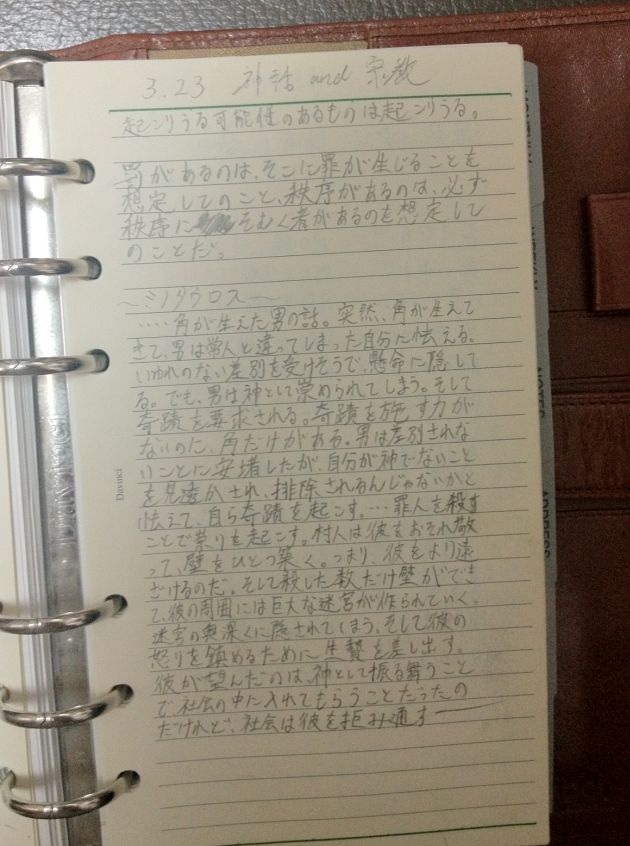 3.23 神話 and 宗教
起こりうる可能性のあるものは起こりうる。
罰があるのは、そこに罪が生じることを
想定してのこと、秩序があるのは、必ず
秩序に そむく者があるのを想定して
のことだ。
〜ミノタウロス〜
‥‥角が生えた男の話。突然、角が生えて
きて、男は常人と違ってしまった自分に怯える。
いわれのない差別を受けそうで、懸命に隠して
る。でも、男は神として崇められてしまう。そして
奇蹟を要求される。奇蹟を施す力が
ないのに、角だけがある。男は差別されな
いことに安堵したが、自分が神でないこと
を見透かされ、排除されるんじゃないかと
怯えて、自ら奇蹟を起こす。…罪人を殺す
ことで祟りを起こす。村人は彼をおそれ敬
って、壁をひとつ築く。つまり、彼をより遠
ざけるのだ。そして殺した数だけ壁ができ
て、彼の周囲には巨大な迷宮が作られていく。
迷宮の奥深くに隠されてしまう。そして彼の
怒りを鎮めるために生贄を差し出す。
彼が望んだのは、神として振る舞うこと
で、社会の中に入れてもらうことだったの
だけれど、社会は彼を拒み通す——
Davinci
NOTES
ADDRESS